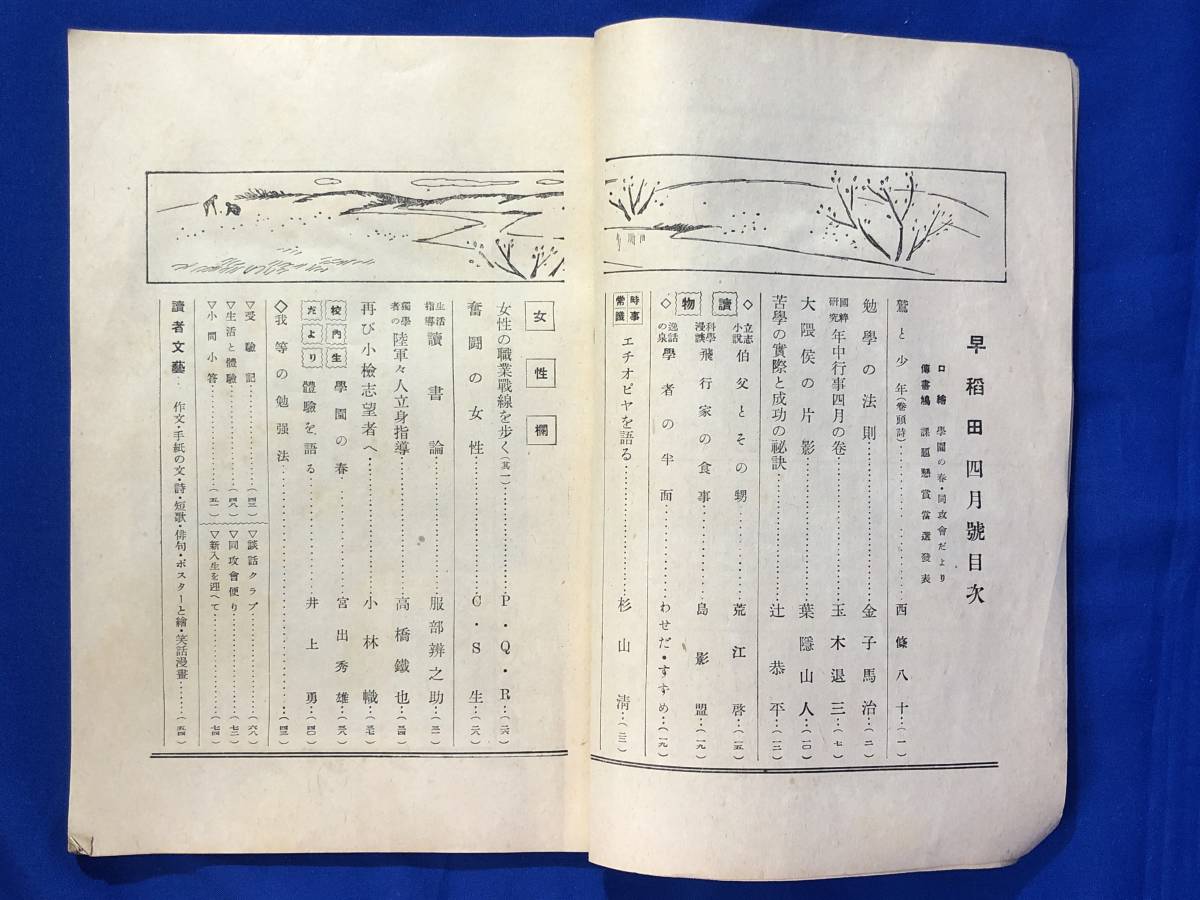 早稲田 四月號目次
口繪 學園の春・同攻會だより
傳書鳩 課題懸賞當選發表
鷲と少年(卷頭詩)………西條八十…(一)
勉學の法則………金子馬治…(二)
國粹研究 年中行事四月の卷………玉木退三…(七)
大隈侯の片影………葉隱山人…(一〇)
苦學の實際と成功の祕訣………辻恭平…(一二)
讀物
◇立志小說 伯父とその甥………荒江啓…(一五)
科學漫談 飛行家の食事………島影盟…(一九)
◇逸話の泉 學者の半面………わせだ・すずめ…(一九)
時事常識 エチオピヤを語る………杉山清…(二三)
女性欄
女性の職業戰線を步く(其一)………P・Q・R…(二六)
奮鬪の女性………C・S生…(二八)
生活指導 讀書論………服部辨之助…(三一)
獨學者の 陸軍々人立身指導………高橋鐵也…(三四)
再び小檢志望者へ………小林幟…(三七)
校內生だより
學園の春………宮出秀雄…(三八)
體驗を語る………井上勇…(四〇)
◇我等の勉强法………(四三)
▽受驗記………(四三)
▽談話クラブ………(六八)
▽生活と體驗………(四八)
▽同攻會便り………(七二)
▽小問小答………(五一)
▽新入生を迎へて………(七四)
讀者文藝…作文・手紙の文・詩・短歌・俳句・ポスターと繪・笑話漫畫……(五四)